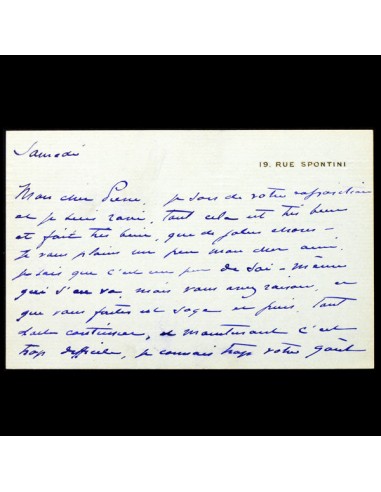 Samedi
19. RUE SPONTINI
Mon cher Pierre, je sors de votre exposition
et je suis ravi, tout cela est très beau
et fait très bien, que de jolies choses -
Je vous plains un peu mon cher ami,
je sais que c'est un peu de soi-même
qui s'en va, mais vous avez raison, ce
que vous faites est sage et puis, tout
doit continuer, et maintenant c'est
trop difficile, je connais trop votre goût